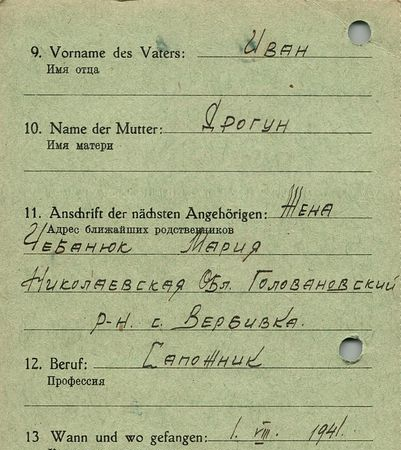 9. Vorname des Vaters: Иван
Имя отца
10. Name der Mutter: Дрогун
Имя матери
11. Anschrift der nächsten Angehörigen: Жена
Адрес ближайших родственников
Чебанюк Мария
Николаевская Обл. Головановский
р-н. с. Вербивка.
12. Beruf: Сапожник
Профессия
13 Wann und wo gefangen: 1. VIII. 1941.